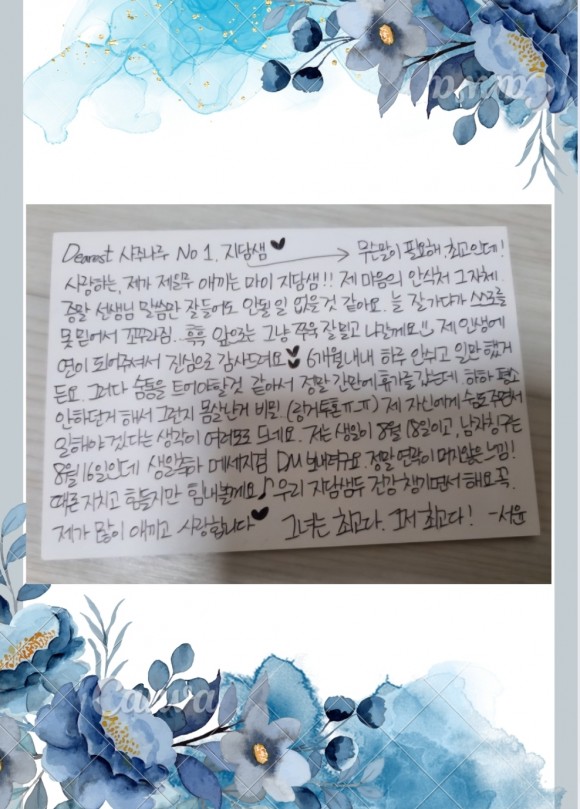 Canva
Dearest 사주나루 No 1. 지담쌤♥ → 무슨말이 필요해, 최고인데!
사랑하는, 제가 제일루 애끼는 마이 지담쌤!! 제 마음의 안식처 그자체
증말 선생님 말씀만 잘들어도 안될 일 없을것 같아요. 늘 잘가다가 스스로를
못믿어서 꼬꾸라짐.. 흑흑 앞으로는 그냥 쭈욱 잘 밀고 나갈께요!! 제 인생에
연이 되어주셔서 진심으로 감사드려요♥ 6개월내내 하루 안쉬고 일만 했거
든요. 그러다 숨통을 트여야할것 같아서 정말 간만에 휴가를 갔는데, 하하 평소
안하던거 해서 그런지 몸살난거 비밀. (링거투혼ㅠ.ㅠ) 제 자신에게 숨도 주면서
일해야겠다는 생각이 여러모로 드네요. 저는 생일이 8월 18일이고, 남자친구는
8월 16일인데 생일축하 메세지겸 DM 보내려구요. 정말 연락이 머지않은 느낌!
때론 지치고 힘들지만 힘내볼께요♪ 우리 지담쌤두 건강 챙기면서 해요 꼭.
제가 많이 애끼고 사랑합니다♥ 그녀는 최고다. 그저 최고다! -서윤
Canva